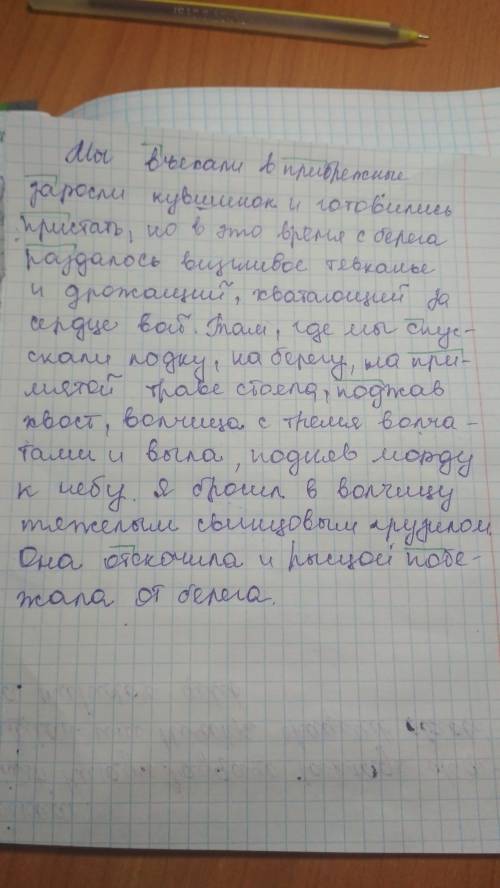 Мы въехали в прибрежные
заросли кувшинок и готовились
пристать, но в это время с берега
раздалось визгливое тевканье
и дрожащий, хватающий за
сердце вой. Там, где мы спус-
скали лодку, на берегу, на при-
мятой траве стояла, поджав
хвост, волчица с тремя волча-
тами и выла, подняв морду
к небу. Я бросил в волчицу
тяжелым свинцовым грузилом
Она отскочила и рысцой побе-
жала от берега.